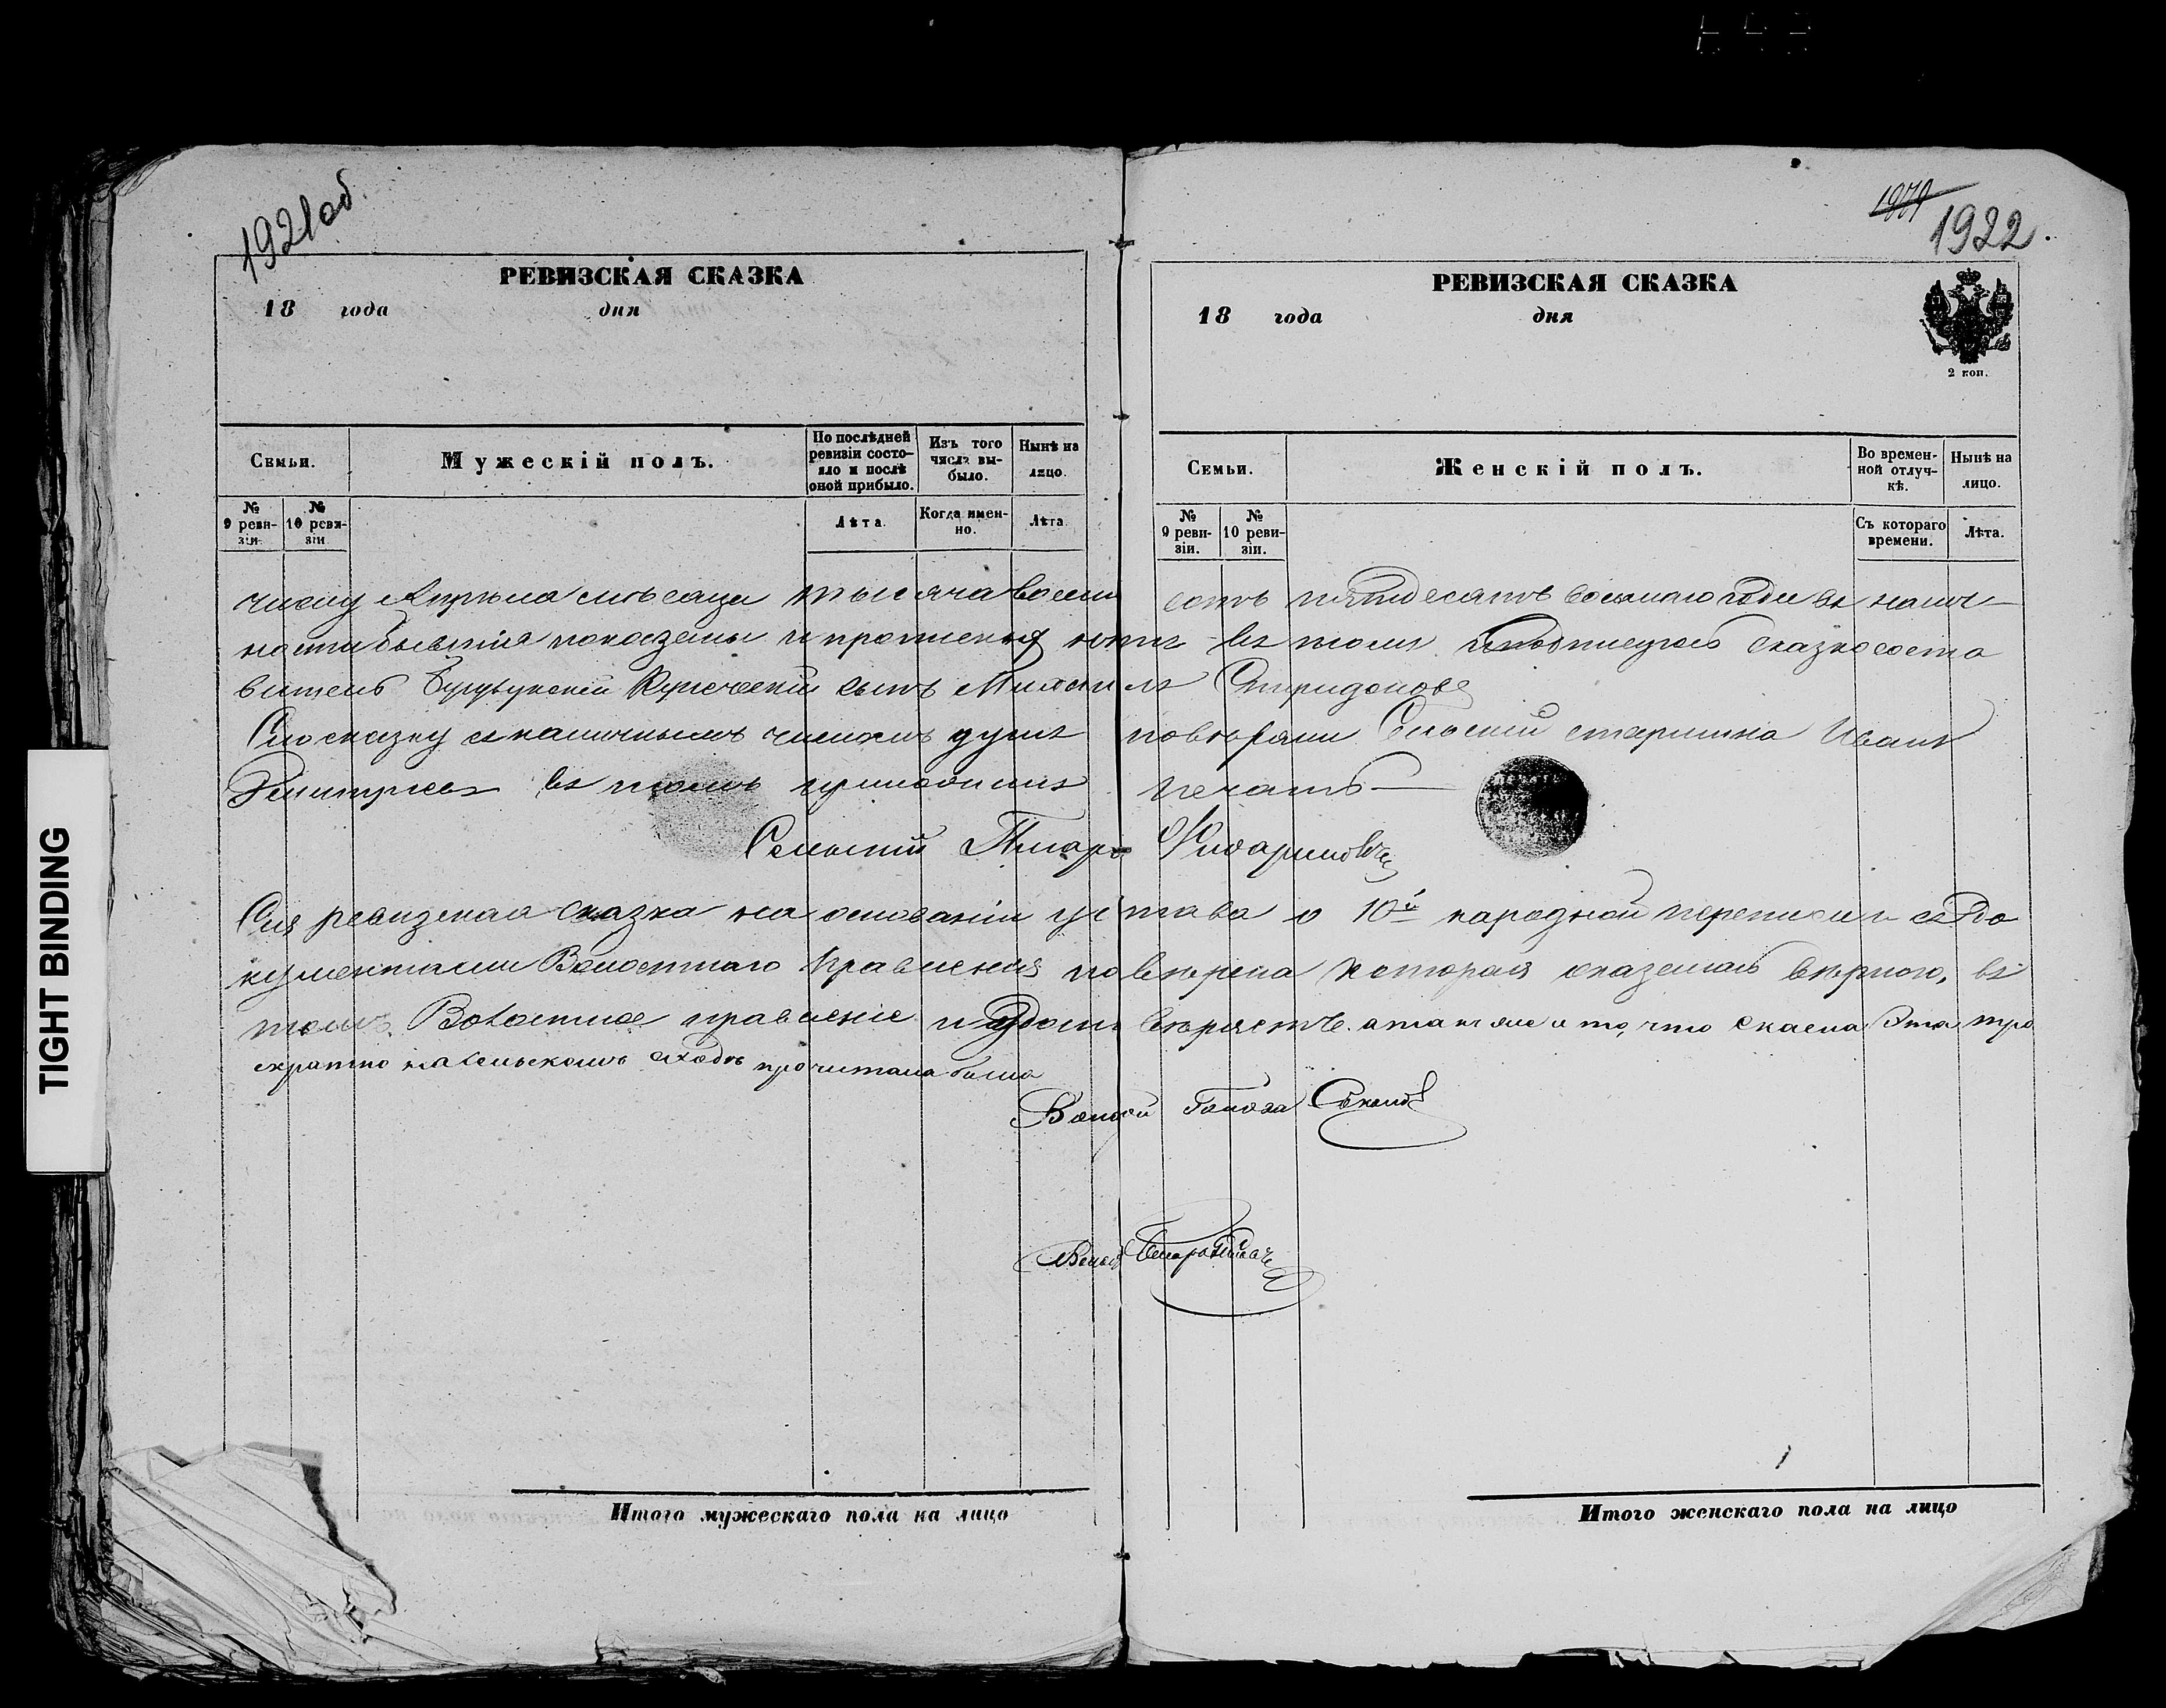 1921 об.
РЕВИЗСКАЯ СКАЗКА
18 года дня
Семьи.
Мужескій полъ.
По послѣдней ревизіи состояло и послѣ оной прибыло.
Изъ того числа выбыло.
Нынѣ на лицо.
№ 9 ревизіи.
№ 10 ревизіи.
Лѣта.
Когда именно.
Лѣта.
1922.
РЕВИЗСКАЯ СКАЗКА
18 года дня
2 коп.
Семьи.
Женскій полъ.
Во временной отлучкѣ.
Нынѣ на лицо.
№ 9 ревизіи.
№ 10 ревизіи.
Съ котораго времени.
Лѣта.
числу Апрѣля мѣсяца тысяча восемь сотъ пятидесятъ восьмаго года въ налич
ности бывшія показаны и прописныхъ нѣтъ въ томъ сказкососта
витель Бугурусланскій Купеческій сынъ Михаилъ Спиридоновъ
Сію сказку съ наличнымъ числомъ душъ повѣрялъ Сельскій старшина Иванъ
Дмитріевъ въ томъ приложилъ печать
Сельскій Писарь
Сія ревизская сказка на основаніи устава о 10й народной переписи и съ до
кументами Волостнаго Правленія повѣрена которая оказалась вѣрною, въ
томъ Волостное правленіе и удостовѣряетъ. а также и то, что сказка эта тро
екратно на сельскомъ сходѣ прочитана была
Волостной Голова
Итого мужескаго пола на лицо
Итого женскаго пола на лицо
TIGHT BINDING